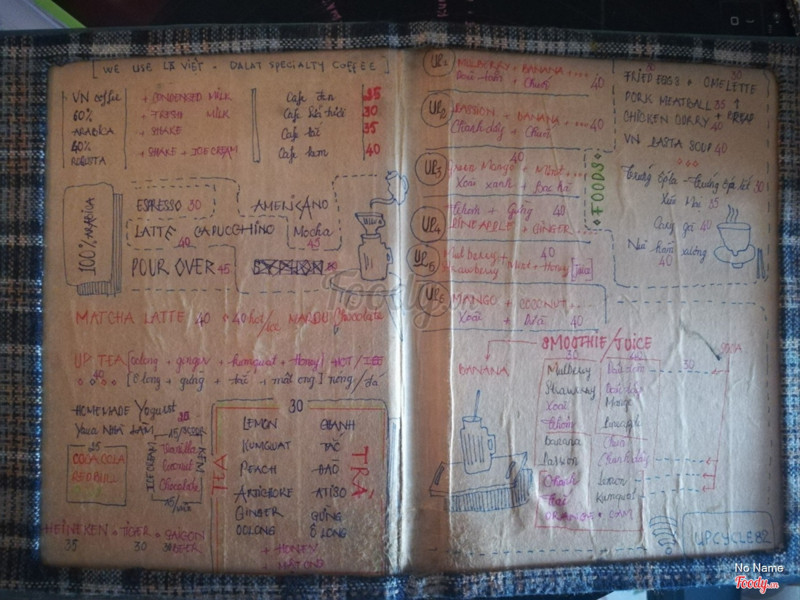 [ WE USE LÀ VIỆT - DALAT SPECIALTY COFFEE ]
VN coffee
60%
ARABICA
40%
ROBUSTA
+ CONDENSED MILK
+ FRESH MILK
+ SHAKE
+ SHAKE + ICE CREAM
Cafe đen 35
Cafe 30
Cafe 35
Cafe kem 40
100% ARABICA
ESPRESSO 30
AMERICANO
LATTE CAPUCCHINO 40
Mocha 45
POUR OVER 45
SYPHON
MATCHA LATTE 40
40 hot/ice MAROU Chocolate
UP TEA (oolong + ginger + kumquat + Honey) HOT / ICE
40 [Ô long + gừng + tắc + mật ong] nóng / đá
HOMEMADE Yogurt 35
Yaua NHÀ LÀM
25
COCA COLA
RED BULL
ICE CREAM
KEM
Vanilla
Coconut
Chocolate
HEINEKEN + TIGER + SAIGON BEER
35 30 30
30
TEA
TRÀ
LEMON CHANH
KUMQUAT TẮC
PEACH ĐÀO
ARTICHOKE ATISO
GINGER GỪNG
OOLONG Ô LONG
+ HONEY
MẬT ONG
UP1 MULBERRY + BANANA + ... 40
Dâu tằm + Chuối
UP2 PASSION + BANANA + ... 40
Chanh dây + Chuối
UP3 40
Green Mango + Mint + ...
Xoài xanh + Bạc hà
UP4 Thơm + Gừng 40
PINEAPPLE + GINGER
UP5 Mulberry + 40
Strawberry Juice + Honey
UP6 MANGO + COCONUT
Xoài + Dừa 40
FOODS
FRIED EGGS + OMELETTE
PORK MEATBALL 35
CHICKEN CURRY + BREAD 40
VN PASTA SOUP 40
Trứng ốp la - Trứng ốp lết 30
Xíu Mại 35
Cary gà 40
Nui hầm xương 40
SMOOTHIE / JUICE
BANANA
SODA
30
Mulberry
Strawberry
Xoài Mango
Thơm Pineapple
Banana Chuối
Passion Chanh dây
Chanh Lemon
Kumquat
ORANGE + CAM
UPCYCLE82
Foody.vn
No Name
Foody.vn